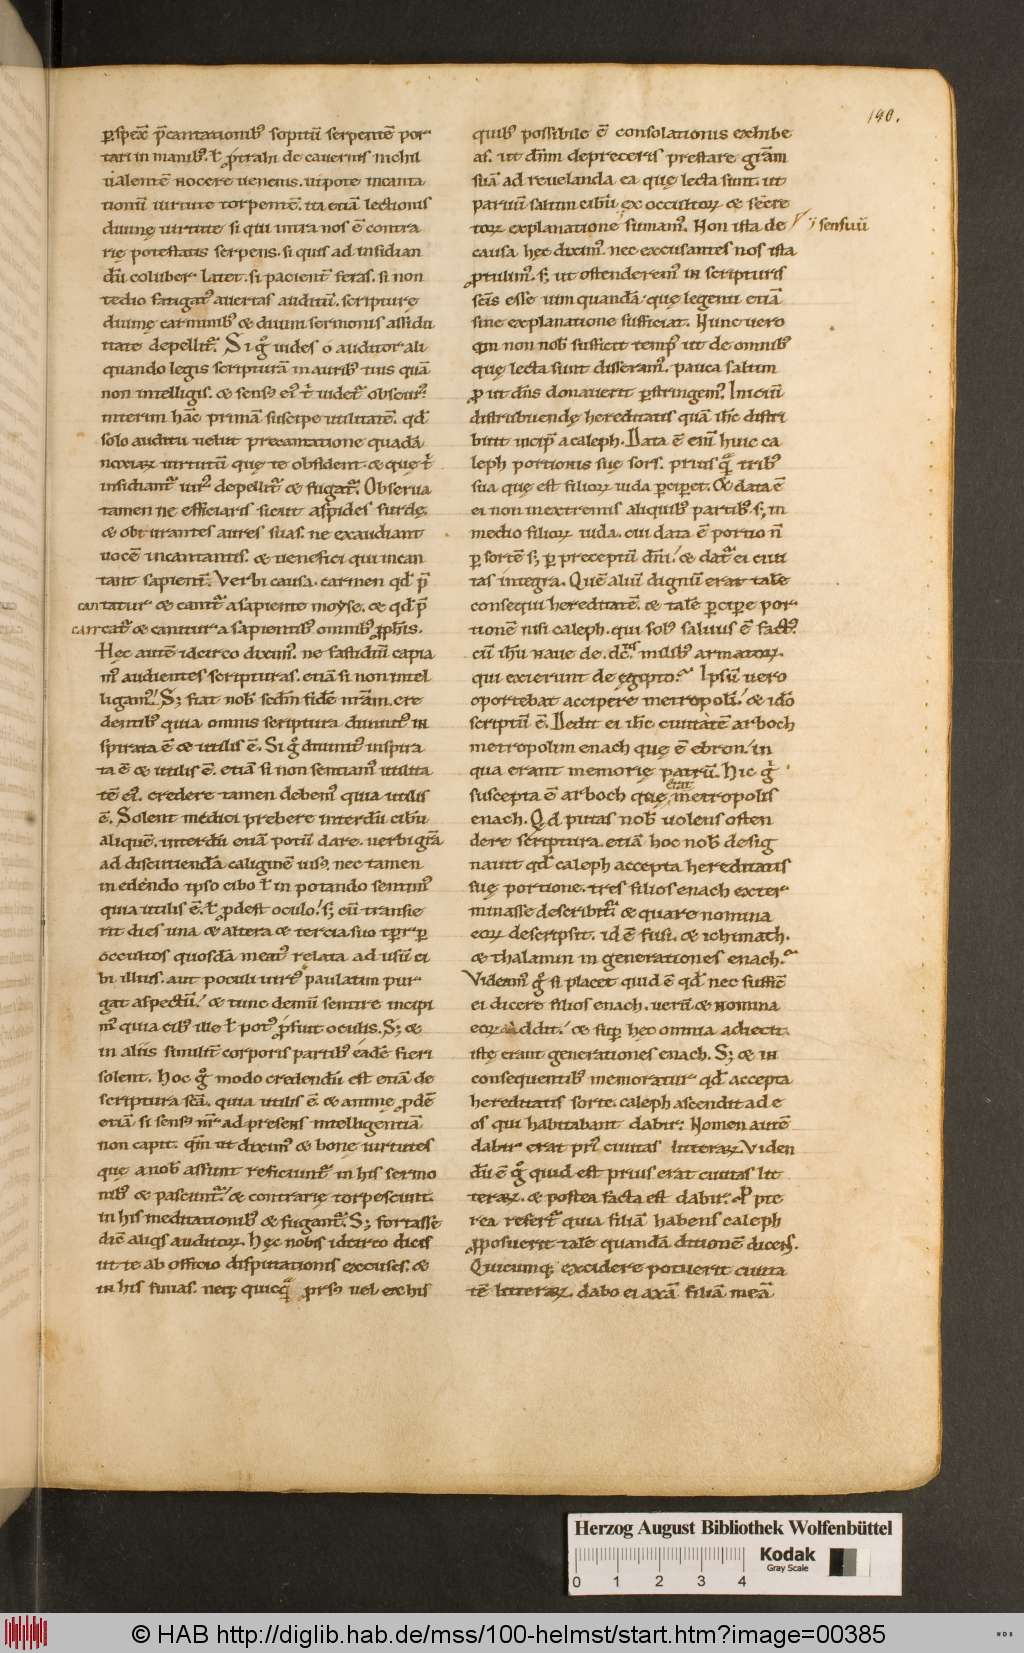 190.
ꝑspexi p̄cantationibꝰ sopitū serpentē por
tari in manibꝰ. ł ꝓtrahi de cauernis nichil
ualentē nocere uenenis. utpote incanta
tionū uirtute torpentē. ita etiā lectionis
diuinę uirtute si qui intra nos ē contra
rię potestatis serpens. si quis ad insidian
dū coluber latet. si pacient᷑ feras. si non
tedio fatigatꝰ auertas auditū. scripturę
diuinę carminibꝰ & diuini sermonis assidu
itate depellit᷑. Si gͦ uides o auditor ali
quando legis scripturā in auribꝰ tuis quā
non intelligis. & sensꝰ eiꝰ t̄ uidet᷑ obscurꝰ.
interim hāc primā suscipe utilitatē. qđ
solo auditu uelut precantatione quadā
noxiaꝝ uirtutū quę te obsident & quę t̄
insidiant᷑ uirꝰ depellit᷑ & fugat᷑. Obserua
tamen ne efficiaris sicut aspides surdę.
& obturantes aures suas. ne exaudiant
uocē incantantis. & uenefici qui incan
tant᷑ sapient᷑. Verbi causa. carmen qđ p̄
cantatur & cantat᷑ a sapiente moyse. & qđ p̄
cantat᷑ & canitur a sapientibꝰ omnibꝰ ꝓph̄is.
Hęc autē idcirco diximꝰ. ne fastidiū capia
mꝰ audientes scripturas. etiā si non intel
ligamꝰ. Sꝫ fiat nobis scđm fidē nr̄am. cre
dentibꝰ quia omnis scriptura diuinitꝰ in
spirata ē & utilis ē. Si gͦ diuinitꝰ inspira
ta ē & utilis ē. etiā si non sentiamꝰ utilita
tē eiꝰ. credere tamen debemꝰ quia utilis
ē. Solent medici prebere interdū cibū
aliquē. interdū etiā potū dare. uerbi gr̄a
ad discutiendā caliginē uisꝰ. nec tamen
in edendo ipso cibo ł in potando sentimꝰ
quia utilis ē. ł ꝓdest oculo. sꝫ cū transie
rit dies una & altera & tercia suo tp̄r ꝑ
occultos quosdā meatꝰ relata ad usū ci
bi illius. aut poculi uirtꝰ paulatim pur
gat aspectū. & tunc demū sentire incipi
mꝰ quia cibꝰ ille ł potꝰ ꝓfuit oculis. Sꝫ &
in aliis similit᷑ corporis partibꝰ eadē fieri
solent. Hoc gͦ modo credendū est etiā de
scriptura sc̄a. quia utilis ē. & animę ꝓdē
etiā si sensꝰ nr̄ ad presens intelligentiā
non capit. qm̄ ut diximꝰ & bone uirtutes
quę a nob̄ assunt reficiunt᷑ in his sermo
nibꝰ & pascunt᷑. & contrarię torpescunt.
in his meditationibꝰ & fugant᷑. Sꝫ fortasse
dic̄ aliqs auditoꝝ. Hęc nobis idcirco dicis
ut te ab officio disputationis excuses. &
in his finias. neqꝫ quicqͣ prorsꝰ uel ex his
quibꝰ possibile ē consolationis exhibe
as. ut dn̄m depreceris prestare gr̄am
suā ad reuelanda ea quę lecta sunt. ut
paruū saltim cibū ex occultioꝝ & secre
tioꝝ explanatione sumamꝰ. Non ista de
ij sensuū
causa hęc diximꝰ. nec excusantes nos ista
ꝓtulimꝰ. sꝫ ut ostenderemꝰ in scripturis
sc̄is esse uim quandā. quę legenti etiā
sine explanatione sufficiat. Nunc uero
qm̄ non nob̄ sufficit tempꝰ ut de omnibꝰ
quę lecta sunt disseramꝰ. pauca saltim
ꝓ ut dn̄s donauerit ꝑstringemꝰ. Iniciū
distribuendę hereditatis quā ih̄c distri
buit incip̄ a caleph. Data ē enī huic ca
leph portionis suę sors. priusqͣ tribꝰ
sua quę est filioꝝ iuda ꝑciperet. & data ē
ei non in extremis aliquibꝰ partibꝰ. sꝫ in
medio filioꝝ iuda. cui data ē portio n̄
ꝑ sortē sꝫ ꝑ preceptū dn̄i. & dat᷑ ei ciui
tas integra. Quē aliū dignū erat tale
consequi hereditatē. & talē ꝑcipere por
tionē nisi caleph. qui solꝰ saluus ē factꝰ.
cū ih̄u naue de. dc̄tis milibꝰ armatoꝝ.
qui exierunt de ęgipto. Ipsū uero
oportebat accipere metropolī. & idō
scriptū ē. Dedit ei ih̄c ciuitatē arboch
metropolim enach quę ē ebron. in
qua erant memorię patrū. Hic gͦ
suscepta ē arboch quę erat metropolis
enach. Qđ putas nob̄ uolens osten
dere scriptura. etiā hoc nob̄ desig
nauit qđ caleph accepta hereditatis
suę portione. tres filios enach exter
minasse describit᷑. & quare nomina
eoꝝ descripsit. id ē fusi. & ichimath.
& thalamin in generationes enach.
Videamꝰ gͦ si placet quid ē qđ nec suffic̄
ei dicere filios enach. uerū & nomina
eoꝝ addit. & sup̄ hęc omnia adiecit.
istę erant generationes enach. Sꝫ & in
consequentibꝰ memoratur qđ accepta
hereditatis sorte. caleph ascendit ad e
os qui habitabant dabir. Nomen autē
dabir erat priꝰ ciuitas litteraꝝ. Viden
dū ē gͦ quid est prius erat ciuitas lit
teraꝝ. & postea facta est dabir. Ppte
rea refert᷑ quia filiā habens caleph
ꝓposuerit tale quandā ditionē dicens.
Quicumqꝫ excidere potuerit ciuita
tē litteraꝝ. dabo ei axā filiā meā
Herzog August Bibliothek Wolfenbüttel
Kodak
Gray Scale
0 1 2 3 4
© HAB http://diglib.hab.de/mss/100-helmst/start.htm?image=00385